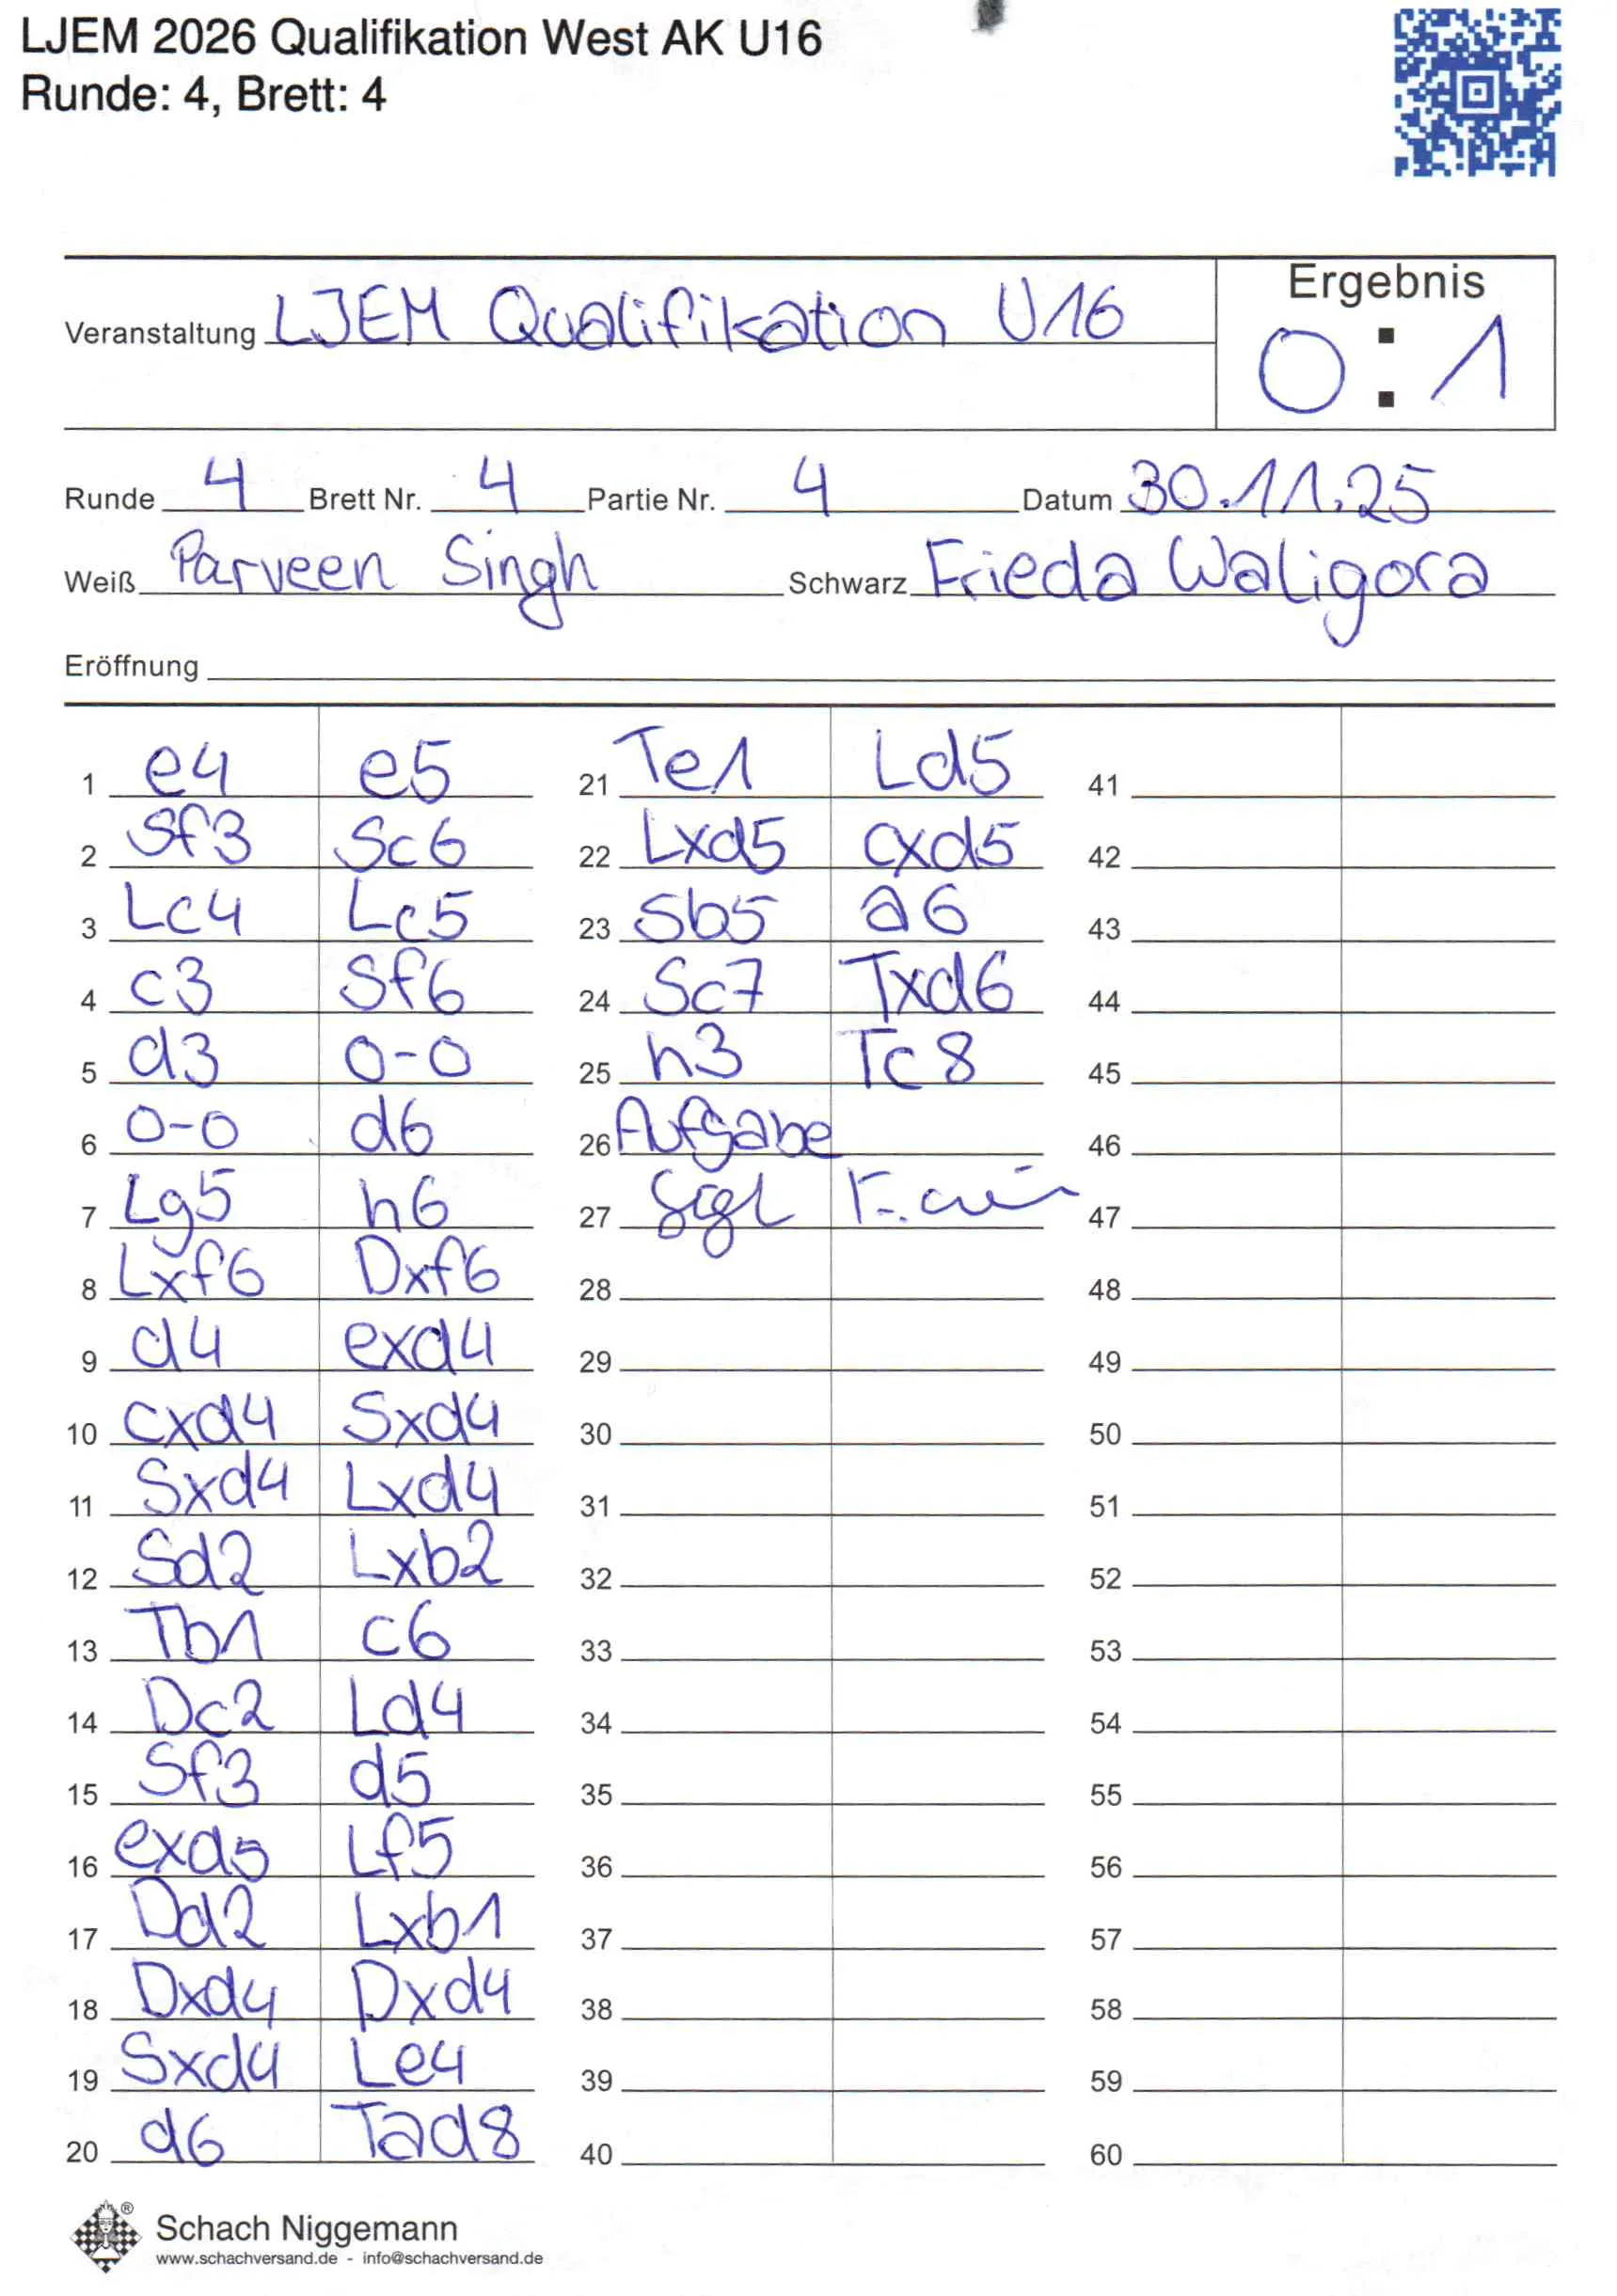 LJEM 2026 Qualifikation West AK U16
Runde: 4, Brett: 4
Veranstaltung LJEM Qualifikation U16
Ergebnis
0 : 1
Runde 4 Brett Nr. 4 Partie Nr. 4 Datum 30.11.25
Weiß Parveen Singh Schwarz Frieda Waligora
Eröffnung
1 e4 e5
2 Sf3 Sc6
3 Lc4 Lc5
4 c3 Sf6
5 d3 0-0
6 0-0 d6
7 Lg5 h6
8 Lxf6 Dxf6
9 d4 exd4
10 cxd4 Sxd4
11 Sxd4 Lxd4
12 Sd2 Lxb2
13 Tb1 c6
14 Dc2 Ld4
15 Sf3 d5
16 exd5 Lf5
17 Dd2 Lxb1
18 Dxd4 Dxd4
19 Sxd4 Le4
20 d6 Tad8
21 Te1 Ld5
22 Lxd5 cxd5
23 Sb5 a6
24 Sc7 Txd6
25 h3 Tc8
26 Aufgabe
27
28
29
30
31
32
33
34
35
36
37
38
39
40
41
42
43
44
45
46
47
48
49
50
51
52
53
54
55
56
57
58
59
60
®
Schach Niggemann
www.schachversand.de - info@schachversand.de